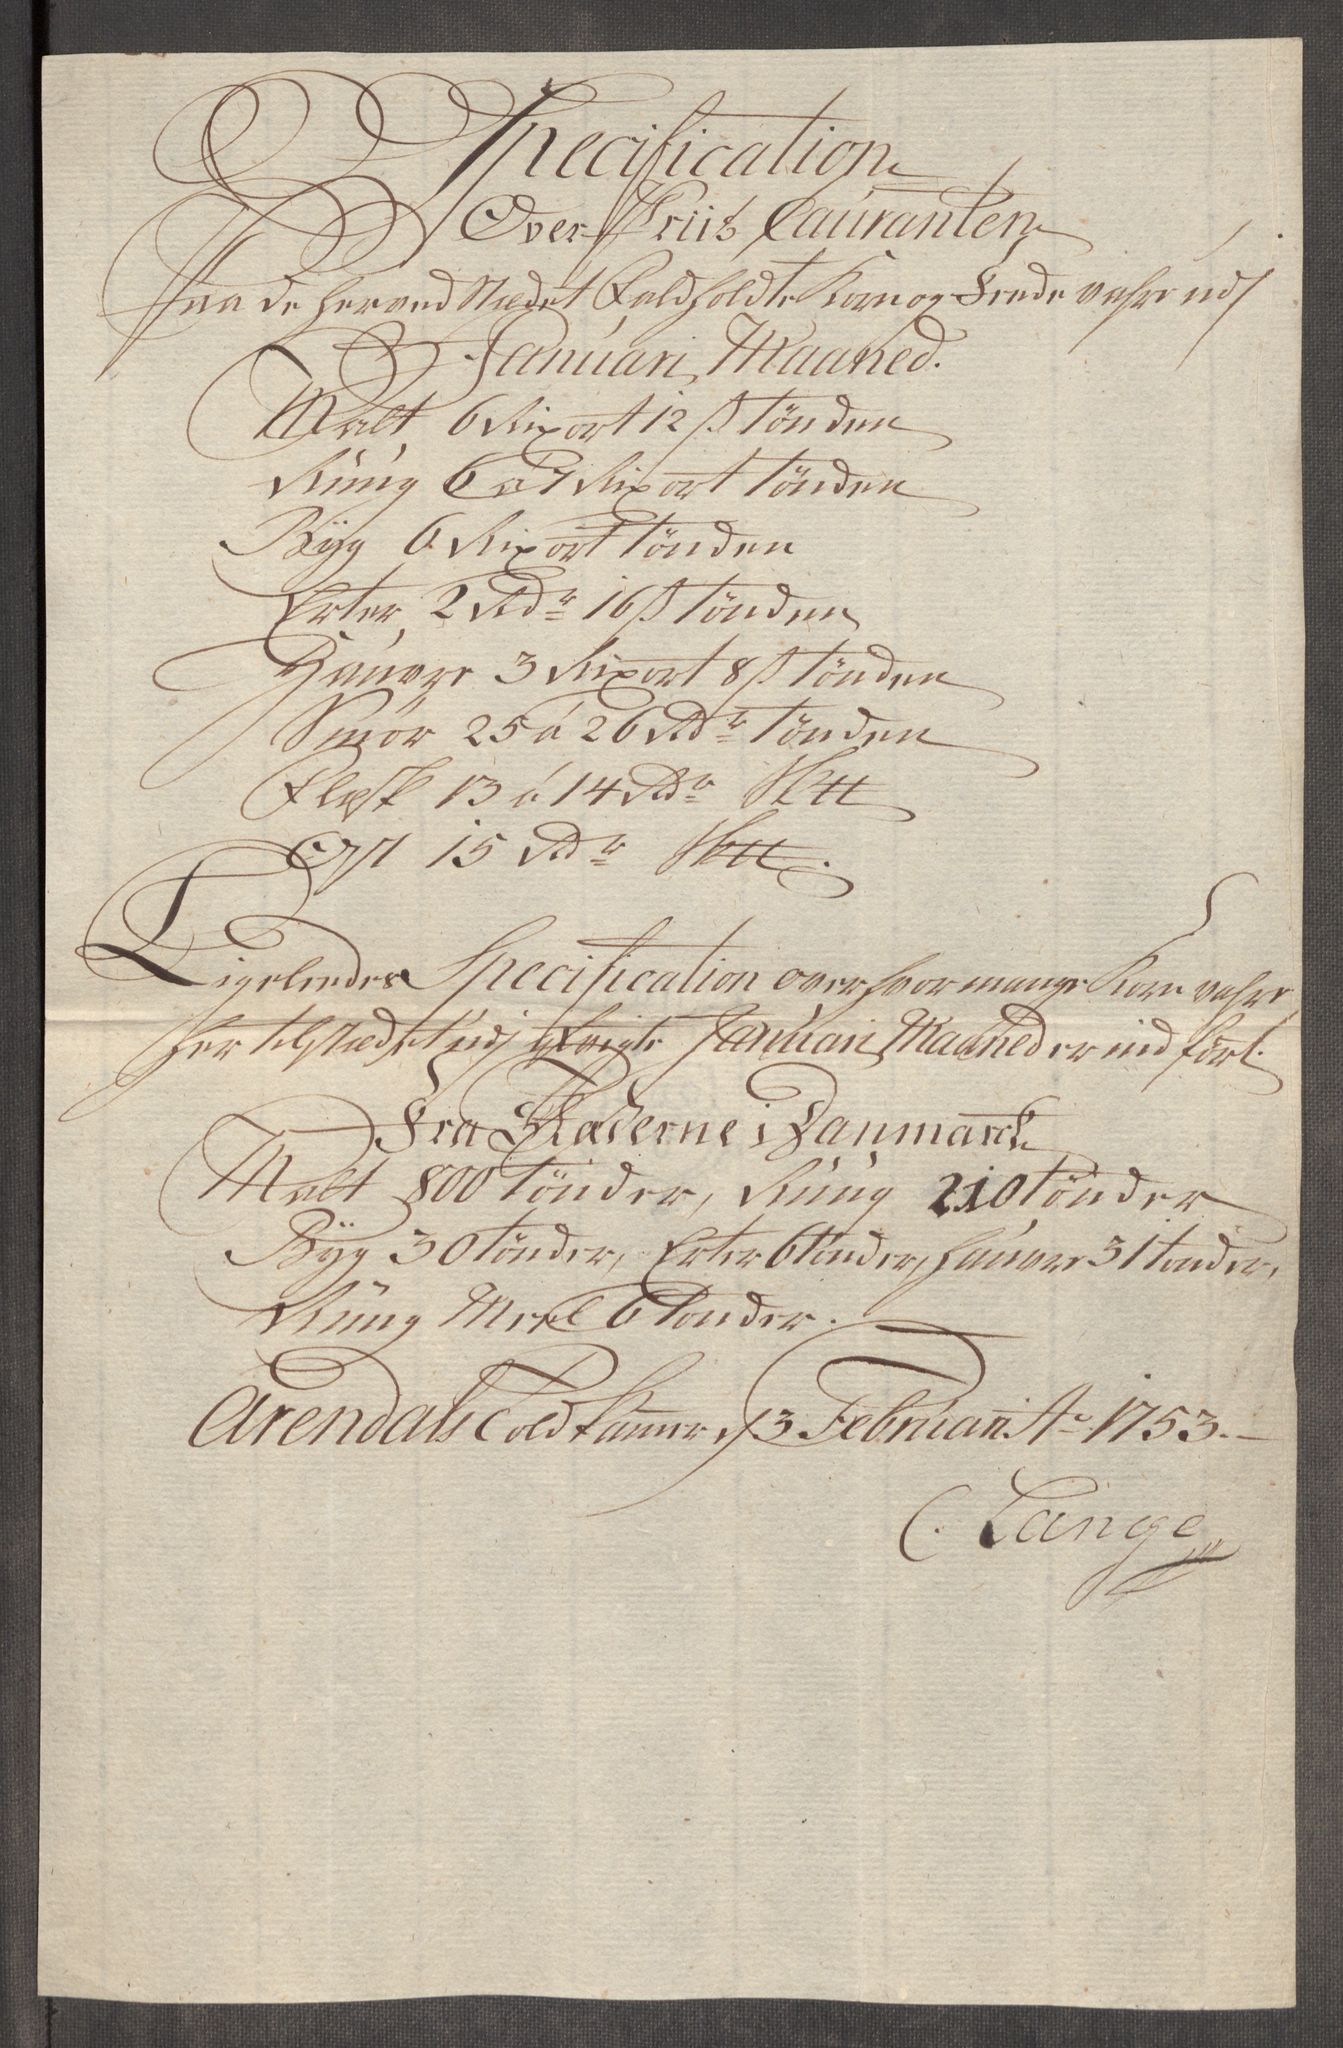 Specification
Over Priis Couranten
Paa de her ved Stædet Faldholdte Korn og Fede vahre udj
Januari Maaned.
Malt 6 Rixort 12 s tönden
Rúúg 6 a 7 Rixort tönden
Bÿg 6 Rixort tönden
Erter 2 Rdr 16 s tönden
Haúvre 3 Rixort 8 s tönden
Smör 25 á 26 Rdr tönden
Flesk 13 á 14 Rdr Sk℔
Ost 15 Rdr Sk℔.
Ligeleedes Specification over hvor mange Korn vahre,
her til Stædet udj Januari Maaned er ind fört.
Fra Stæderne i Danmarck
Malt 800 tönder, Rúúg 210 tönder
Bÿg 30 tönder, Erter 6 tönder, haúvre 31 tonder,
Rúúg Meel 6 tonder.
Arendals Toldkammer d 3 Februarii Ao 1753.
C. Lange